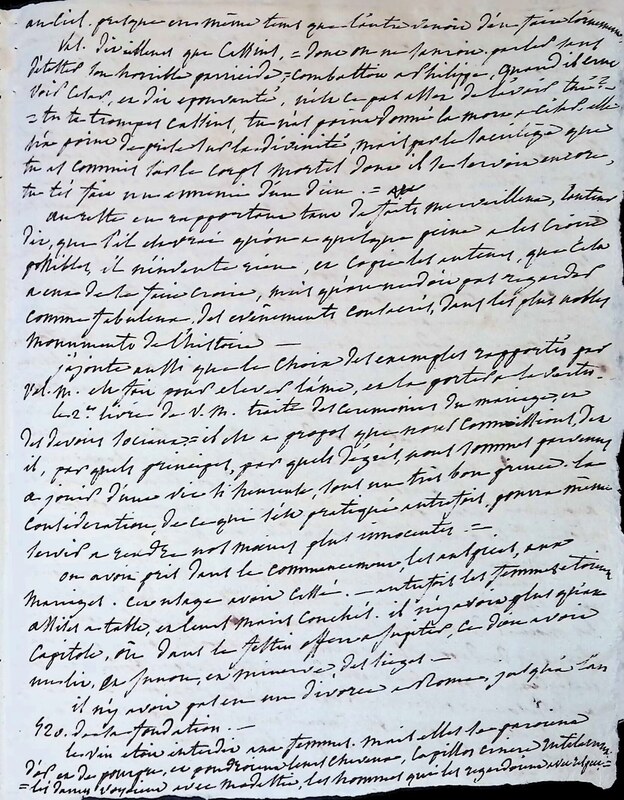 au ciel. presque en même tems que l'autre venoit d'en faire l'ornement.
Val. dit ailleurs que Cassius, = dont on ne sauroit parler sans
détester son horrible parricide = combattoit a Philippe, quand il crut
voir César, et dit epouvanté, n'est ce pas assez de l'avoir tué?
= tu te trompes Cassius, tu n'as point donné la mort a César, elle
n'a point de prise sur la divinité, mais par le sacrilège que
tu as commis sur le corps mortel dont il se servoit encore,
tu t'es fait un ennemi d'un dieu. =
au reste en rapportant tant de faits merveilleux, l'auteur
dit, que s'il est vrai qu'on a quelque peine a les croire
possibles, il n'invente rien, et copie les auteurs, que c'est
a eux de le faire croire, mais qu'on ne doit pas regarder
comme fabuleux des evènements consacrés, dans les plus nobles
monuments de l'histoire —
j'ajoute aussi que le choix des exemples rapportés par
Val. M. est fait pour elever l'ame, et la porter a la vertu.
le 2.e livre de V. M. traite des ceremonies du mariage, et
des devoirs sociaux = il est a propos que nous connoissions, dit
il, par quels principes, par quels dégrés, nous sommes parvenus
a jouir d'une vie si heureuse, sous un très bon prince. la
consideration, de ce qui s'est pratiqué autrefois, pourra même
servir a rendre nos moeurs plus innocentes. =
on avoit pris dans le commencement, les auspices, aux
mariages. cet usage avoit cessé. — autrefois les femmes etoient
assises a table, et leurs maris couchés. il n'y avoit plus qu'au
Capitole, où dans le festin offert a Jupiter, ce dieu avoit
un lit, et Junon, et Minerve, des sièges —
il n'y avoit pas eu un divorce a Rome, jusqu'à l'an
520. de la fondation. —
le vin etoit interdit aux femmes. mais elles se paroient
d'or, et de pourpre, et poudroient leurs cheveux, capillos cinere
= les dames voyoient avec modestie, les hommes qui les regardoient